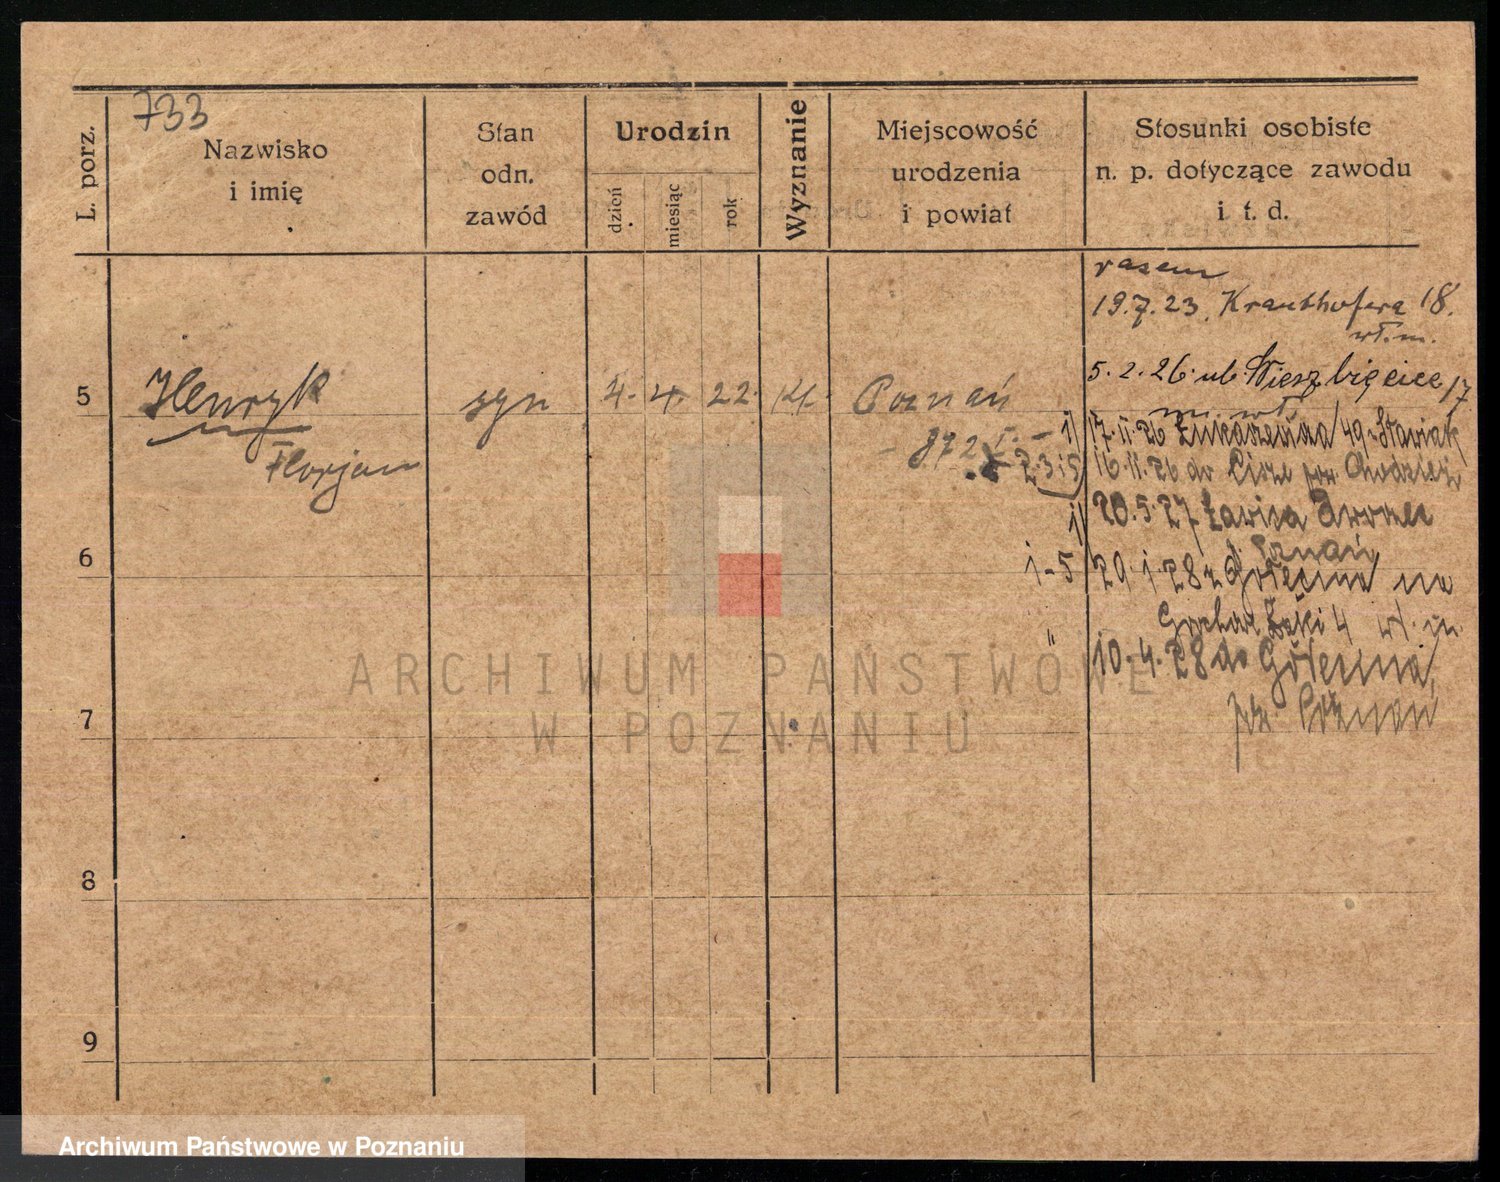 733
L. porz.
Nazwisko
i imię
Stan
odn.
zawód
Urodzin
dzień
miesiąc
rok
Wyznanie
Miejscowość
urodzenia
i powiat
Stosunki osobiste
n. p. dotyczące zawodu
i t. d.
razem
19.7.23. Krauthofera 18.
wł.m.
5 Henryk syn 4. 4. 22. kt. Poznań
5.2.26. ul. Wierzbięcice 17
m. wł.
Florjan
872
1) 17.11.26 Łukaszewicza 49 Stawiak
2.3 i 5 16.11.26 do pow. Chodzież
1) 20.5.27 Ławica dworzec
Poznań
6
1-5 29.1.28 z Golęcina na
4 wł. m.
" 10.4.28 do Golęcina,
pow. Poznań
7
8
9
ARCHIWUM PAŃSTWOWE
W POZNANIU
Archiwum Państwowe w Poznaniu